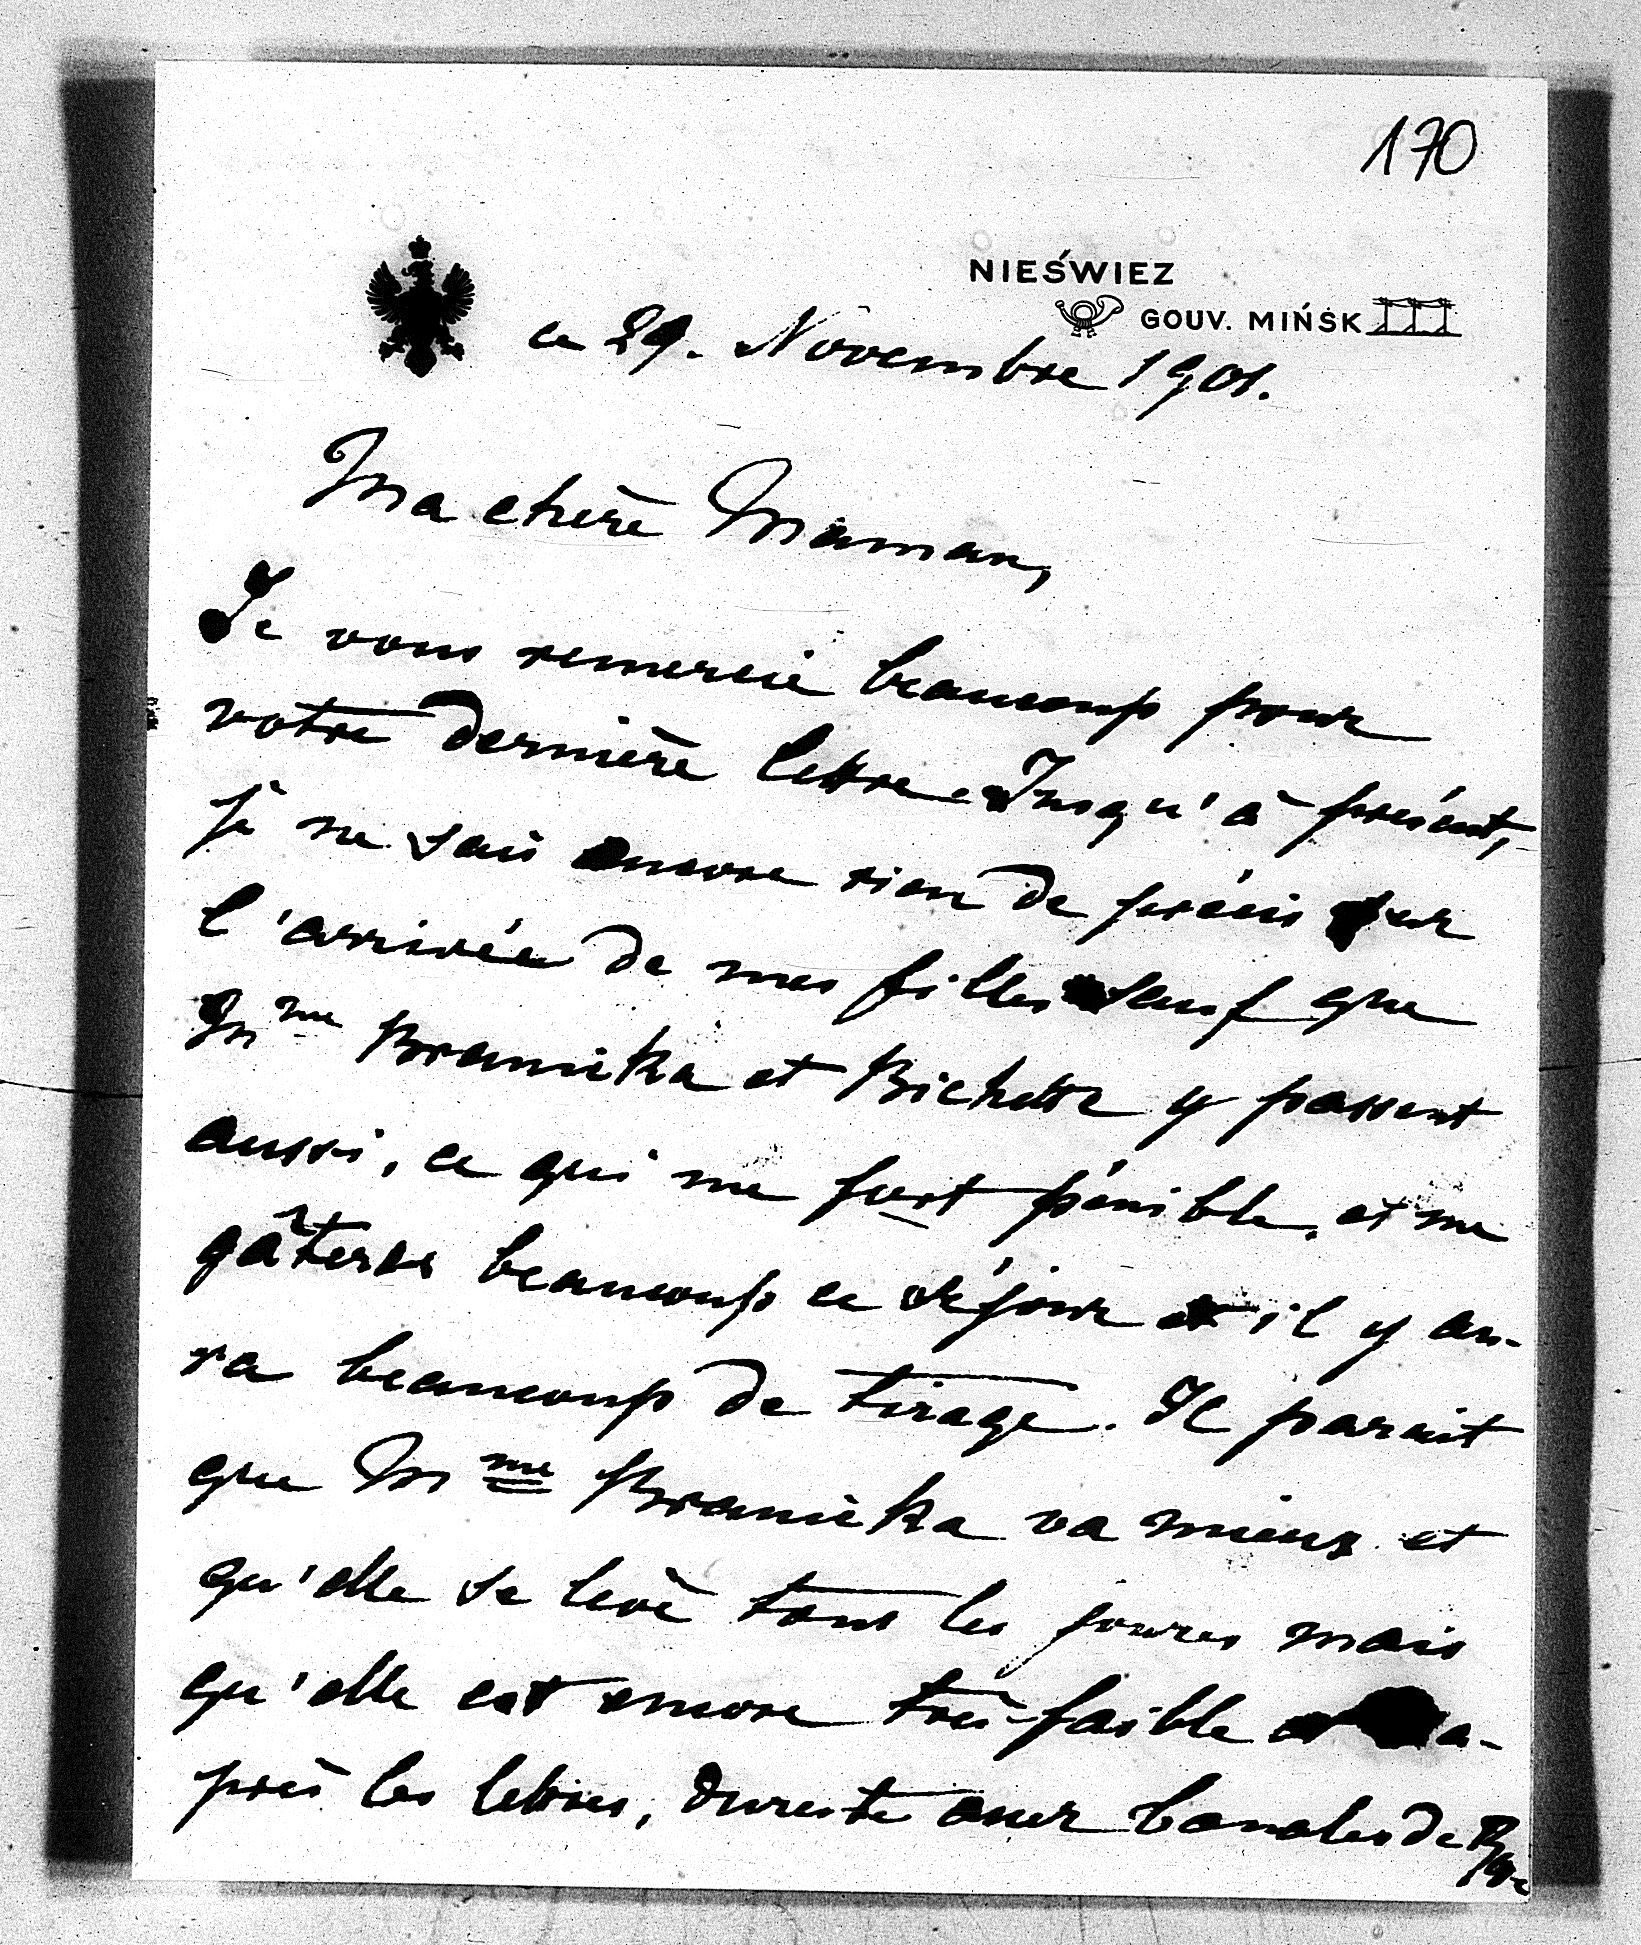 170
NIEŚWIEZ
GOUV. MIŃSK
ce 29. Novembre 1901.
Ma chère Maman,
Je vous remercie beaucoup pour
votre dernière lettre. Jusqu'à présent,
je ne sais encore rien de précis sur
l'arrivée de mes filles sauf que
Mme Branicka et Bichette y passent
aussi, ce qui me fort pénible, et me
gâtera beaucoup ce séjour et il y au-
ra beaucoup de tirage. Il parait
que Mme Branicka va mieux et
qu'elle se lève tous les jours mais
qu'elle est encore très-faible et a-
près les lettres, du reste assez banales de